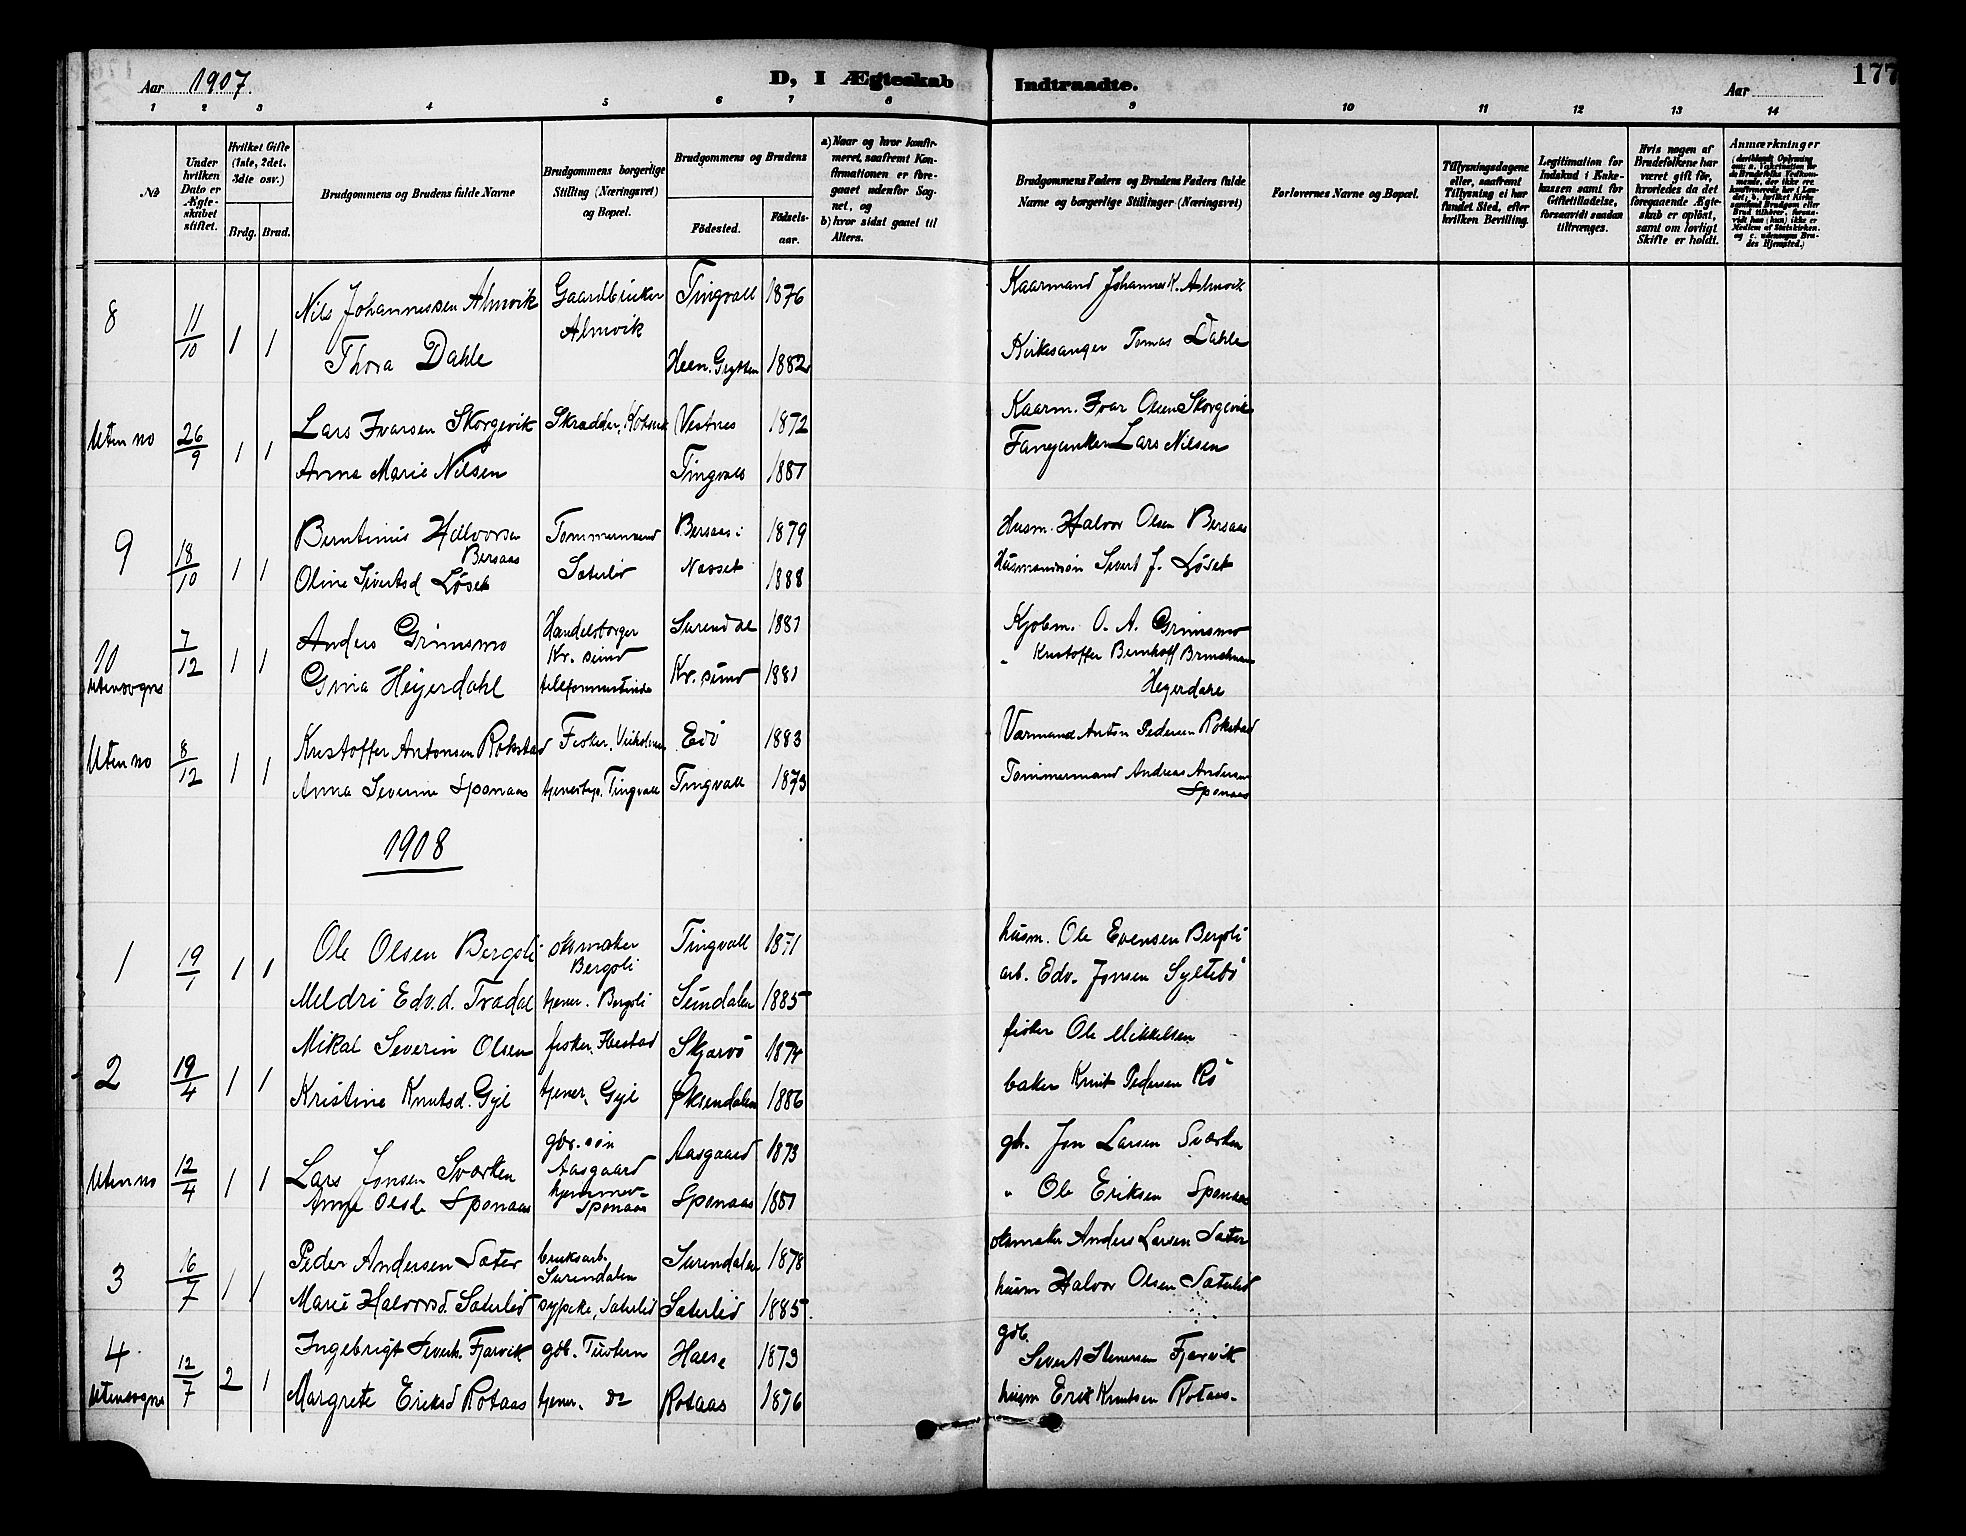 Aar 1907. D, I Ægteskab Indtraadte. Aar 177
1 2 3 4 5 6 7 8 9 10 11 12 13 14
№
Under hvilken Dato er Ægteskabet stiftet.
Hvilket Gifte (1ste, 2det, 3die osv.)
Brdg. Brud.
Brudgommens og Brudens fulde Navne
Brudgommens borgerlige Stilling (Næringsvei) og Bopæl.
Brudgommens og Brudens
Födested. Födselsaar.
a) Naar og hvor konfirmeret, saafremt Konfirmationen er foregaaet udenfor Sognet, og
b) hvor sidst gaaet til Alters.
Brudgommens Faders og Brudens Faders fulde Navne og borgerlige Stillinger (Næringsvei)
Forlovernes Navne og Bopæl.
Tillysningsdagene eller, saafremt Tillysning ei har fundet Sted, efter hvilken Bevilling.
Legitimation for Indskud i Enkekassen samt for Giftetilladelse, forsaavidt saadan tiltrænges.
Hvis nogen af Brudefolkene har været gift før, hvorledes da det foregaaende Ægteskab er oplöst, samt om lovligt Skifte er holdt.
Anmærkninger
8 11/10 1 1 Nils Johannessen Almvik Gaardbruker Tingvoll 1876 Kaarmand Johannes K. Almvik
Almvik
Thora Dahle Heen. Grytten 1882 Kirkesanger Tomas Dahle
Uten no 26/9 1 1 Lars Ivarsen Skorgevik Skrædder, Vestnes 1872 Kaarm. Ivar Olsen Skorgevik
Anna Marie Nilsen Tingvoll 1881 Lars Nilsen
9 18/10 1 1 Berntinus Halvorsen Tømmermand Bersaas: 1879 Husm. Halvor Olsen Bersaas
Bersaas
Oline Sivertsd Løset Sæterlid Nesset 1888 Sivert J. Løset
10 7/12 1 1 Anders Grimsmo Handelsborger Surendal 1881 Kjøbm. O. A. Grimsmo
Kr. sund
Utensogns Gina Heyerdahl Kr. sund 1881 " Kristoffer Bernhoff
Heyerdahl
Uten no 8/12 1 1 Kristoffer Antonsen Rokstad Fisker, Edø 1883 Anton Pedersen Rokstad
Anna Severine Sponaas tjenestep. Tingvoll Tingvoll 1873 Tømmermand Andreas Andersen
Sponaas
1908
1 19/1 1 1 Ole Olsen Bergsli skomaker Tingvoll 1871 husm. Ole Evensen Bergsli
Bergsli
Mildri Edv.d. Tradal tjener. Bergsli Sundalen 1885 arb. Edv. Jonsen Syltebø
2 19/4 1 1 Mikal Severin Olsen fisker, Skjærvø 1874 fisker Ole Mikkelsen
Kristine Knutsd. Gyl tjener, Gyl Øksendalen 1886 baker Knut Pedersen Rø
Uten no 12/4 1 1 Lars Jonsen Sværken gbr. søn Aasgaard 1873 gbr. Jon Larsen Sværken
Aasgaard
Anne Olsd. Sponaas hjemmev. Sponaas 1881 " Ole Eriksen Sponaas
Sponaas
3 16/7 1 1 Peder Andersen Sæter bruksarb. Surendalen 1878 skomaker Anders Larsen Sæter
Surendalen
Marie Halvorsd. Sæterlid sypike, Sæterlid Sæterlid 1885 husm Halvor Olsen Sæterlid
4 12/7 2 1 Ingebrigt Siverts. Fjørvik gdb. Tustern Halse 1873 gdb.
Sivert Stenersen Fjørvik
Utensogns Margrete Eriksd Rotaas tjener. do Rotaas 1876 husm Erik Knutsen Rotaas